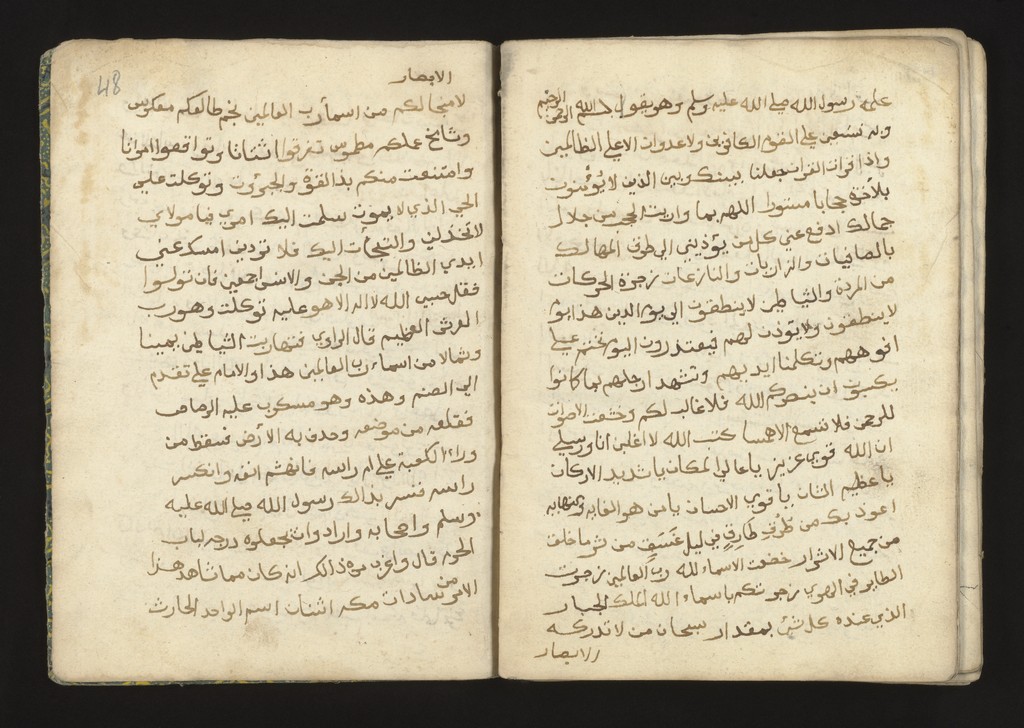 عليه رسول الله صلي الله عليه وسلم وهو يقول بسم الله الرحمن الرحيم
وبه نستعين علي القوم الكافرين ولا عدوان الا علي الظالمين
واذا قرات القران جعلنا بينك وبين الذين لا يؤمنون
بلاخرة حجابا مستورا اللهم بما وارت الحجب من جلال
جمالك ادفع عني كل من يؤذيني الي طرق المهالك
بالصافيات والذاريات والنازعات زجرة الحركات
من المردة والشياطين لا ينطقون الي يوم الدين هذا يوم
لا ينطقون ولا يوذن لهم فيعتذرون اليوم نختم علي
افوههم وتكلمنا ايديهم وتشهد ارجلهم بما كانوا
يكسبون ان ينصركم الله فلا غالب لكم وخشعت الاصوات
للرحمن فلا تسمع الا همسا كتب الله لا اغلبن انا ورسلي
ان الله قوي عزيز يا عالي المكان يا شديد الاركان
يا عظيم الشان يا قوي الاحسان يا من هو الغايه والنهايه
اعوذ بك من طرق طارق في ليل غسق من شر ما خلق
من جميع الاشرار خضعت الاسماء لله رب العالمين زجرت
الطاير في الهوي زجرتكم باسماء الله الملك الجبار
الذي عنده كل شي بمقدار سبحان من لا تدركه
الابصار
48
الابصار
لا منجا لكم من اسماء رب العالمين نجم طالعكم معكوس
وشامخ علكم مطموس تفرقوا اشتاتا وتواقعوا امواتا
وامتنعت منكم بذالقوة والجبروت وتوكلت علي
الحي الذي لا يموت سلمت اليك امري فيا مولاي
لا تخذلني والتجات اليك فلا تردني امسك عني
ايدي الظالمين من الجن والانس اجمعين فان تولوا
فقل حسبي الله لا اله الا هو عليه توكلت وهو رب
العرش العظيم قال الراوي فتهاربت الشياطين يمينا
وشمالا من اسماء رب العالمين هذا والامام علي تقدم
الي الصنم وهذه وهو مسكوب عليه الرصاص
فقلعه من موضعه وحدف به الارض فسقط من
وراء الكعبة علي ام راسه فانهشم انفه وانكسر
راسه فسر بذالك رسول الله صلي الله عليه
وسلم واصحابه وارادوا ان يجعلوه درجه لباب
الحرم قال واغرب من ذالك انه كان مما شاهد هذا
الامر من سادات مكه اثنان اسم الواحد الحارث